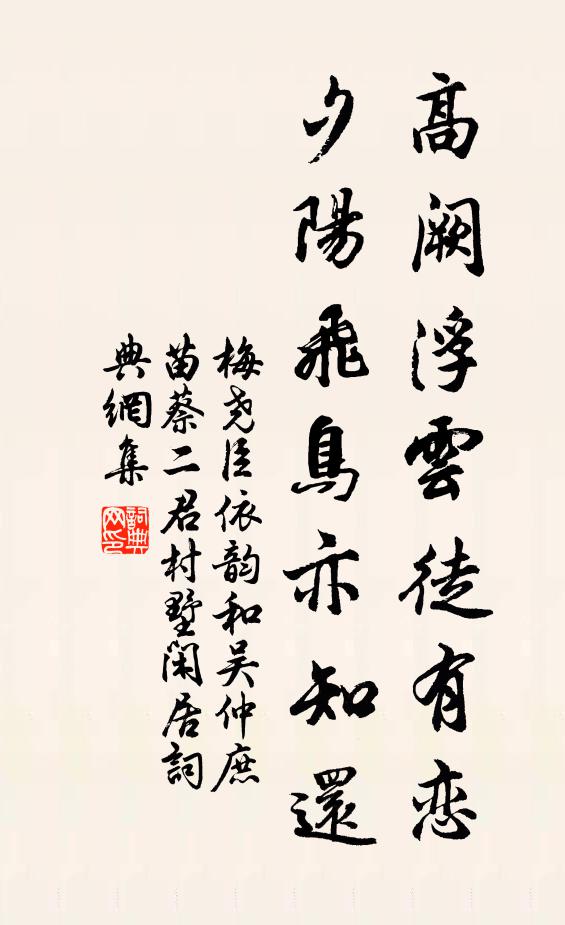 高阙浮雲徒有恋
夕陽飛鳥亦知還
梅尧臣依韵和吴仲庶
苗蔡二君村墅闲居詞
典網集
詞典网印